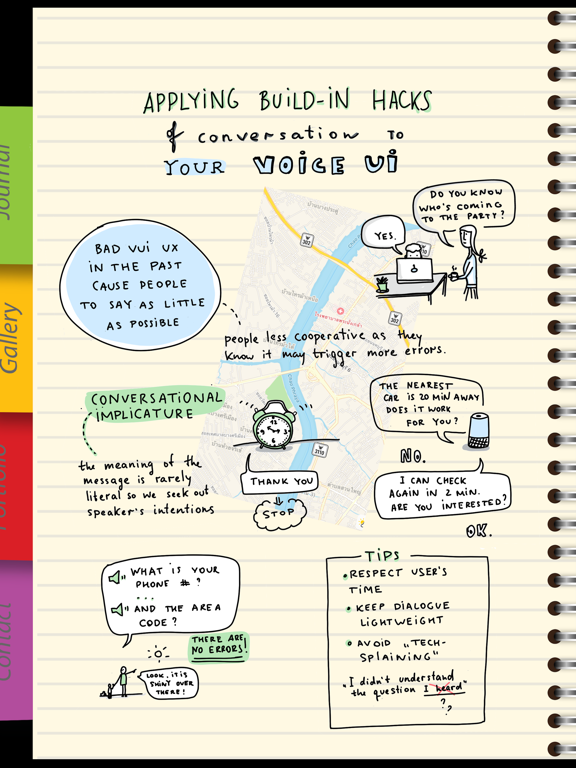 APPLYING BUILD-IN HACKS
of conversation TO
YOUR VOICE UI
DO YOU KNOW
WHO'S COMING
TO THE PARTY?
YES.
BAD VUI UX
IN THE PAST
CAUSE PEOPLE
TO SAY AS LITTLE
AS POSSIBLE
people less cooperative as they
know it may trigger more errors.
CONVERSATIONAL
IMPLICATURE
the meaning of the
message is rarely
literal so we seek out
speaker's intentions
THANK YOU
STOP
THE NEAREST
CAR IS 20 MIN AWAY
DOES IT WORK
FOR YOU?
NO.
I CAN CHECK
AGAIN IN 2 MIN.
ARE YOU INTERESTED?
OK.
WHAT IS YOUR
PHONE # ?
...
AND THE AREA
CODE ?
THERE ARE
NO ERRORS!
LOOK, IT IS
SHINY OVER
THERE!
TIPS
RESPECT USER'S
TIME
KEEP DIALOGUE
LIGHTWEIGHT
AVOID „TECH-
SPLAINING"
"I didn't understand
the question I heard"
? ?
Journal
Gallery
Portfolio
Contact
302
302
3110